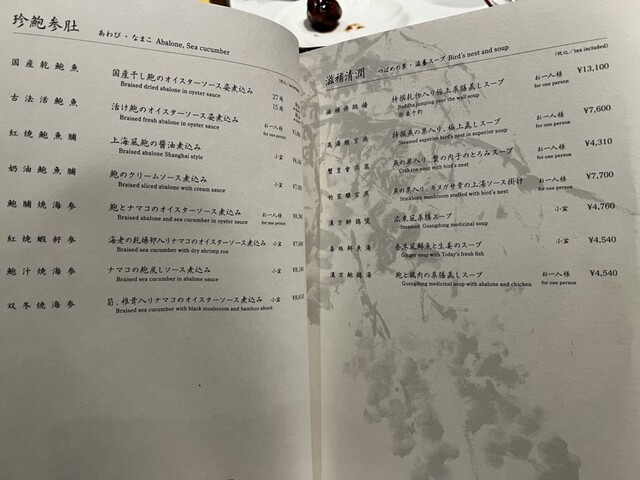 珍鮑参肚
あわび・なまこ Abalone, Sea cucumber
国産乾鮑魚
国産干し鮑のオイスターソース姿煮込み
Braised dried abalone in oyster sauce
古法活鮑魚
活け鮑のオイスターソース姿煮込み
Braised fresh abalone in oyster sauce
お一人様
for one person
紅焼鮑魚脯
上海風鮑の醤油煮込み
Braised abalone Shanghai style
小盆
奶油鮑魚脯
鮑のクリームソース煮込み
Braised sliced abalone with cream sauce
小盆
鮑脯焼海参
鮑とナマコのオイスターソース煮込み
Braised abalone and sea cucumber in oyster sauce
お一人様
for one person
紅焼蝦籽参
海老の乾燥卵入りナマコのオイスターソース煮込み
Braised sea cucumber with dry shrimp roe
小盆
鮑汁焼海参
ナマコの鮑戻しソース煮込み
Braised sea cucumber in abalone sauce
小盆
双冬焼海参
筍、椎茸入りナマコのオイスターソース煮込み
Braised sea cucumber with black mushroom and bamboo shoot
小盆
滋補清潤
つばめの巣・滋養スープ Bird's nest and soup
(税込/tax included)
特撰乾物入り極上蒸しスープ
Buddha jumping over the wall soup
※要予約
お一人様
for one person
¥13,100
特撰燕の巣入り、極上蒸しスープ
Steamed superior bird's nest in superior soup
お一人様
for one person
¥7,600
燕の巣入り、蟹の内子のとろみスープ
Crab roe soup with bird's nest
お一人様
for one person
¥4,310
燕の巣入り、キヌガサ茸の上湯ソース掛け
Stickhorn mushroom stuffed with bird's nest
お一人様
for one person
¥7,700
広東風薬膳スープ
Steamed Guangdong medicinal soup
小盆
¥4,760
香港風鮮魚と生姜のスープ
Ginger soup with Today's fresh fish
小盆
¥4,540
漢方鮑鶏湯
鮑と鶏肉の薬膳蒸しスープ
Guangdong medicinal soup with abalone and chicken
お一人様
for one person
¥4,540